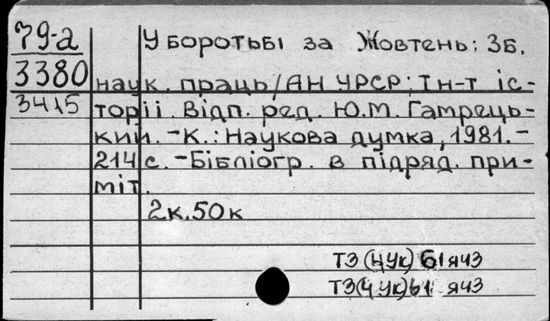 79-а
У боротьбі за Жовтень: Зб.
3380
наук. праць/АН УРСР; Ін-т іс-
3415
торії. Відп. ред. Ю.М. Гамрець-
кий. -К.: Наукова думка, 1981.-
214 с. -Бібліогр. в підряд. при-
міт.
2к.50к
Т3(4Ук)61 я43
Т3(4Ук)61 я43